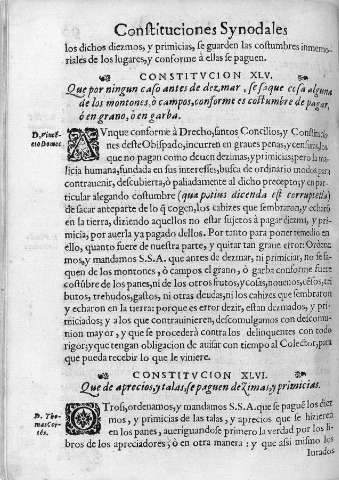 Constituciones Synodales
los dichos diezmos, y primicias, se guarden las costumbres inmemo-
riales de los lugares, y conforme à ellas se paguen.
CONSTITVCION XLV.
Que por ningun caso antes de dezmar, se saque cosa alguna
de los montones, ò campos, conforme es costumbre de pagar,
ò en grano, ò en garba.
AVnque conforme à Drecho, santos Concilios, y Constitucio-
nes deste Obispado, incurren en graues penas, y censuras, los
que no pagan como deuen dezmas, y primicias; pero la ma-
licia humana, fundada en sus interesses, busca de ordinario modos para
contrauenir, descubierta, ò paliadamente al dicho precepto, y en par-
ticular alegando costumbre (que potius dicenda est corruptela)
de sacar anteparte de lo q̃ cogen, los cahizes que sembraron, y echarõ
en la tierra, diziendo aquellos no estar sujetos à pagar dezima, y pri-
micia, por auerla ya pagado dellos. Por tanto para poner remedio en
ello, quanto fuere de nuestra parte, y quitar tan graue error: Ordena-
mos, y mandamos S.S.A. que antes de dezmar, ni primiciar, no se sa-
quen de los montones, ò campos el grano, ò garba conforme fuere
costũbre de los panes, ni de los otros frutos, y cosas, nouenos, cẽsos, tri-
butos, trehudos, gastos, ni otras deudas, ni los cahizes que sembraron
y echaron en la tierra: porque es error dezir, estan dezmados, y pri-
miciados; y a los que contrauinieren, descomulgamos con descomu-
nion mayor, y que se procederà contra los delinquentes con todo
rigor: y que tengan obligacion de auisar con tiempo al Colector, para
que pueda recibir lo que le viniere.
CONSTITVCION XLVI.
Que de aprecios, y talas, se paguen dezimas, y primicias.
D. Tho-
mas Cor-
tès.
OTrosi, ordenamos, y mandamos S.S.A. que se paguẽ los diez-
mos, y primicias de las talas, y aprecios que se hizieren
en los panes, aueriguandose primero la verdad por los li-
bros de los apreciadores; ò en otra manera: y que assi mismo los
Iurados